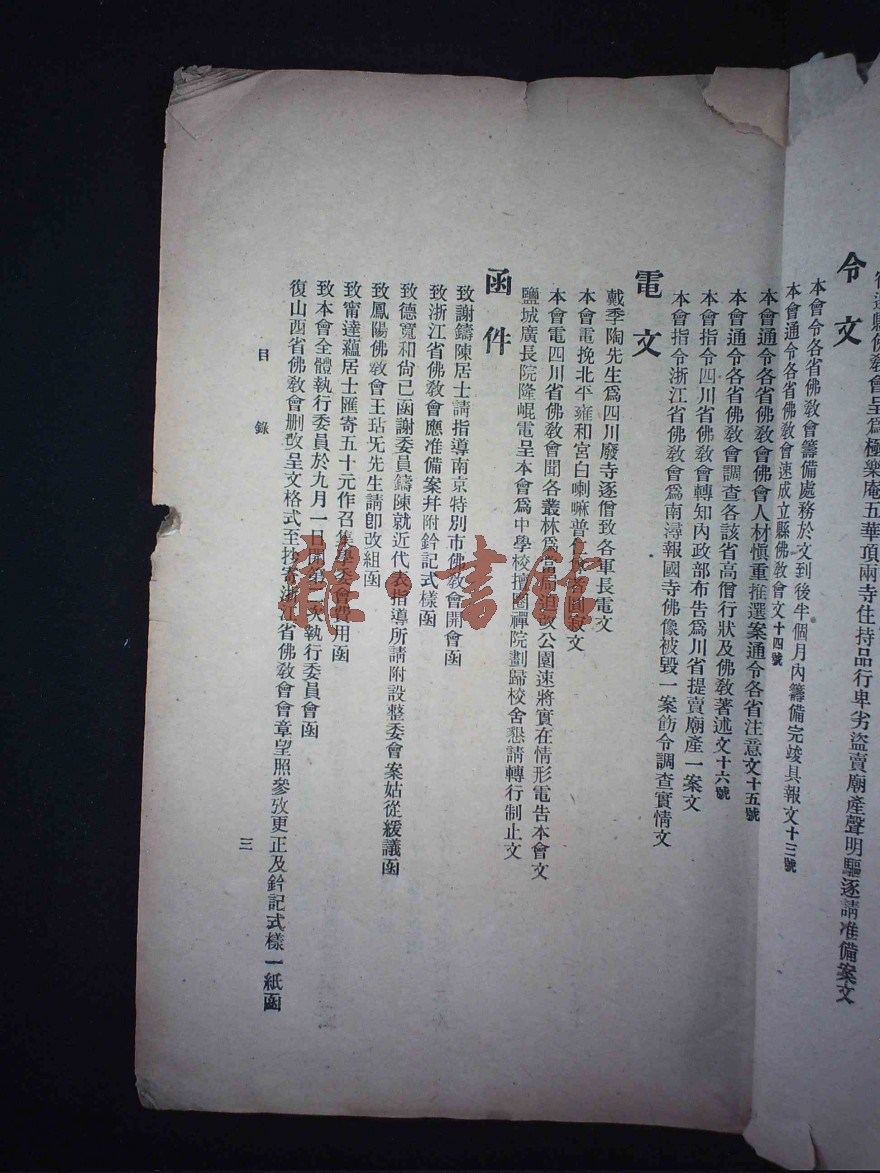 宿遷縣佛敎會呈爲極樂庵五華頂兩寺住持品行卑劣盜賣廟產聲明驅逐請准備案文
令文
本會令各省佛敎會籌備處務於文到後半個月內籌備完竣具報文十三號
本會通令各省佛敎會速成立縣佛敎會文十四號
本會通令各省佛敎會佛會人材愼重推選案通令各省注意文十五號
本會通令各省佛敎會調查各該省高僧行狀及佛敎著述文十六號
本會指令四川省佛敎會轉知內政部布告爲川省提賣廟產一案文
本會指令浙江省佛敎會爲南潯報國寺佛像被毀一案飭令調查實情文
電文
戴季陶先生爲四川廢寺逐僧致各軍長電文
本會電挽北平雍和宮白喇嘛普圓寂文
本會電四川省佛敎會聞各叢林爲改公園速將實在情形電告本會文
鹽城廣長院隆崐電呈本會爲中學校擅圈禪院劃歸校舍懇請轉行制止文
函件
致謝鑄陳居士請指導南京特別市佛敎會開會函
致浙江省佛敎會應准備案并附鈐記式樣函
致德寬和尙已函謝委員鑄陳就近代表指導所請附設整委會案姑從緩議函
致鳳陽佛敎會王玷旡先生請卽改組函
致甯達蘊居士匯寄五十元作召集學委會費用函
致本會全體執行委員於九月一日開第一次執行委員會函
復山西省佛敎會刪改呈文格式至抄寄浙江省佛敎會會章望照參攷更正及鈐記式樣一紙函
目錄
三
雜·書館